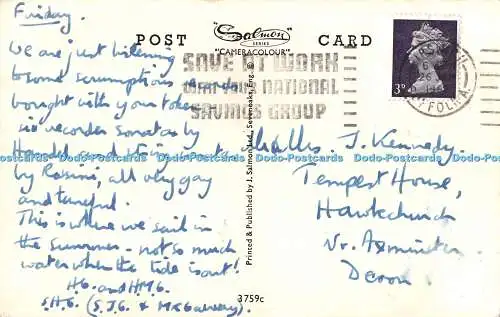 Friday.
We are just listening
to some scrumptious
bought with your token
recorder sonatas by
Handel and
by Rossini, all very gay
and tuneful.
This is where we sail in
the summer - not so much
water when the tide is out!
H.G. and H.M.G.
S.H.G. (S.J.G. &
POST
"Salmon
SERIES
"CAMERACOLOUR"
CARD
SAVE AT WORK
WITH A NATIONAL
SAVINGS GROUP
3D
Printed & Published by J. Salmon Ltd., Sevenoaks, Eng. ©
3759c
J. Kennedy,
Tempest House,
Hawkchurch
Nr. Axminster
Devon
Dodo-Postcards Dodo-Postcards Dodo-Postcards Dodo-Postcards Dodo-Postcards Dodo-Postcards